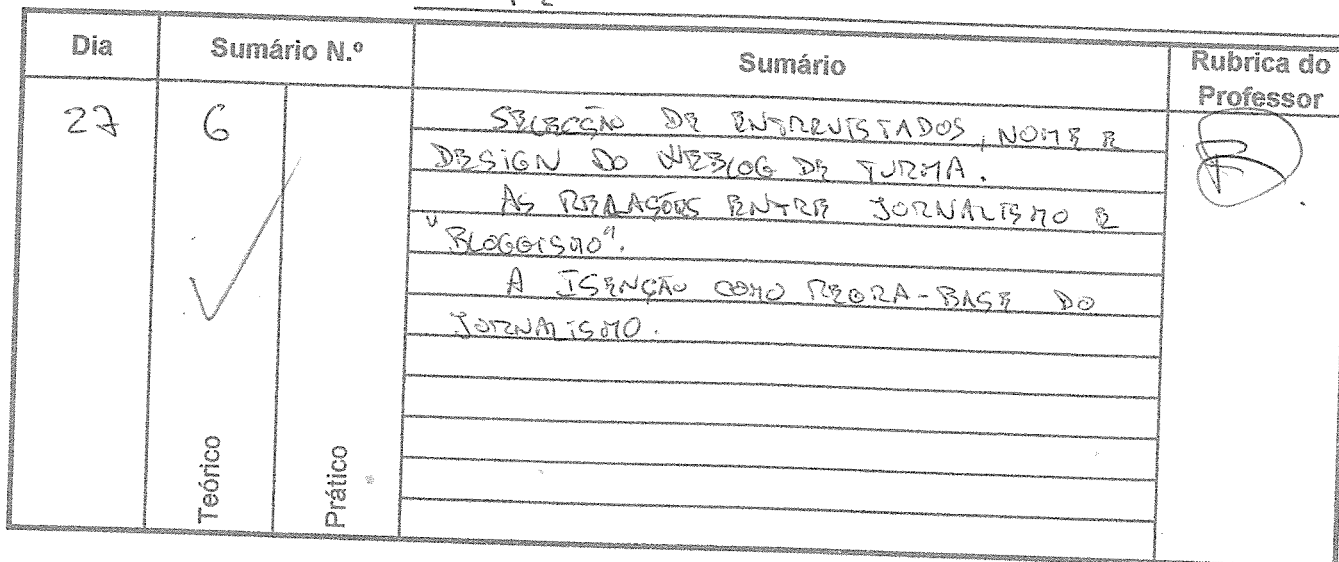 Dia
Sumário N.º
Sumário
Rubrica do
Professor
27
6
SELECÇÃO DE ENTREVISTADOS, NOME E
DESIGN DO WEBLOG DE TURMA.
AS RELAÇÕES ENTRE JORNALISMO E
"BLOGGISMO".
A ISENÇÃO COMO REGRA-BASE DO
JORNALISMO.
Teórico
Prático